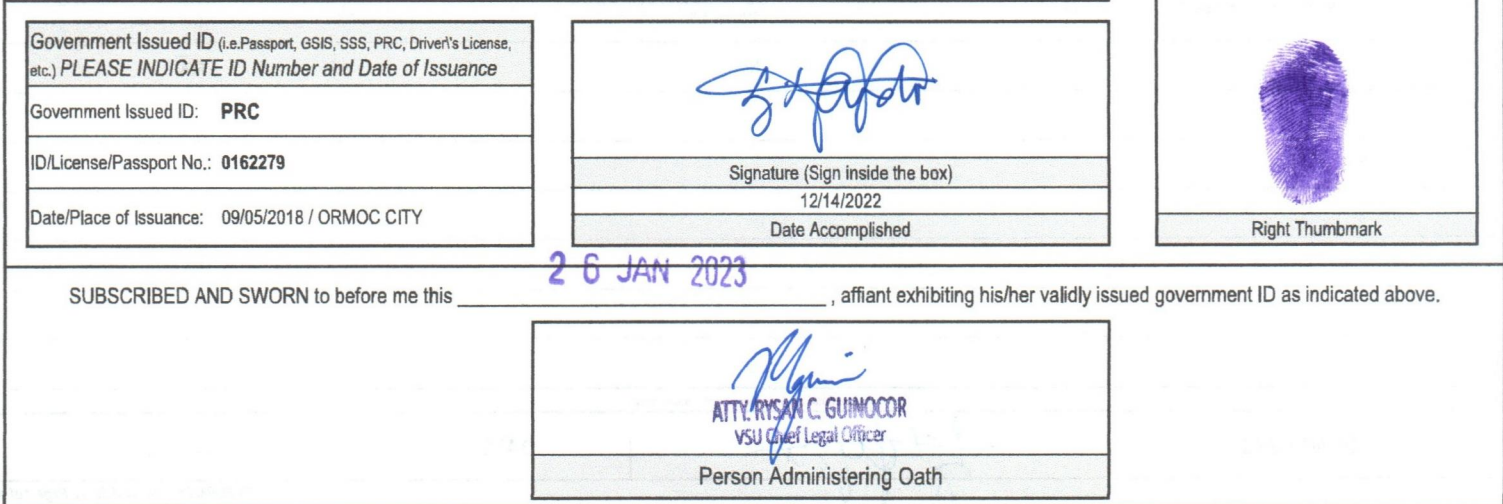 Government Issued ID (i.e.Passport, GSIS, SSS, PRC, Driver\'s License,
etc.) PLEASE INDICATE ID Number and Date of Issuance
Government Issued ID: PRC
ID/License/Passport No.: 0162279
Date/Place of Issuance: 09/05/2018 / ORMOC CITY
Signature (Sign inside the box)
12/14/2022
Date Accomplished
Right Thumbmark
26 JAN 2023
SUBSCRIBED AND SWORN to before me this , affiant exhibiting his/her validly issued government ID as indicated above.
ATTY. RYSAN C. GUINOCOR
VSU Chief Legal Officer
Person Administering Oath